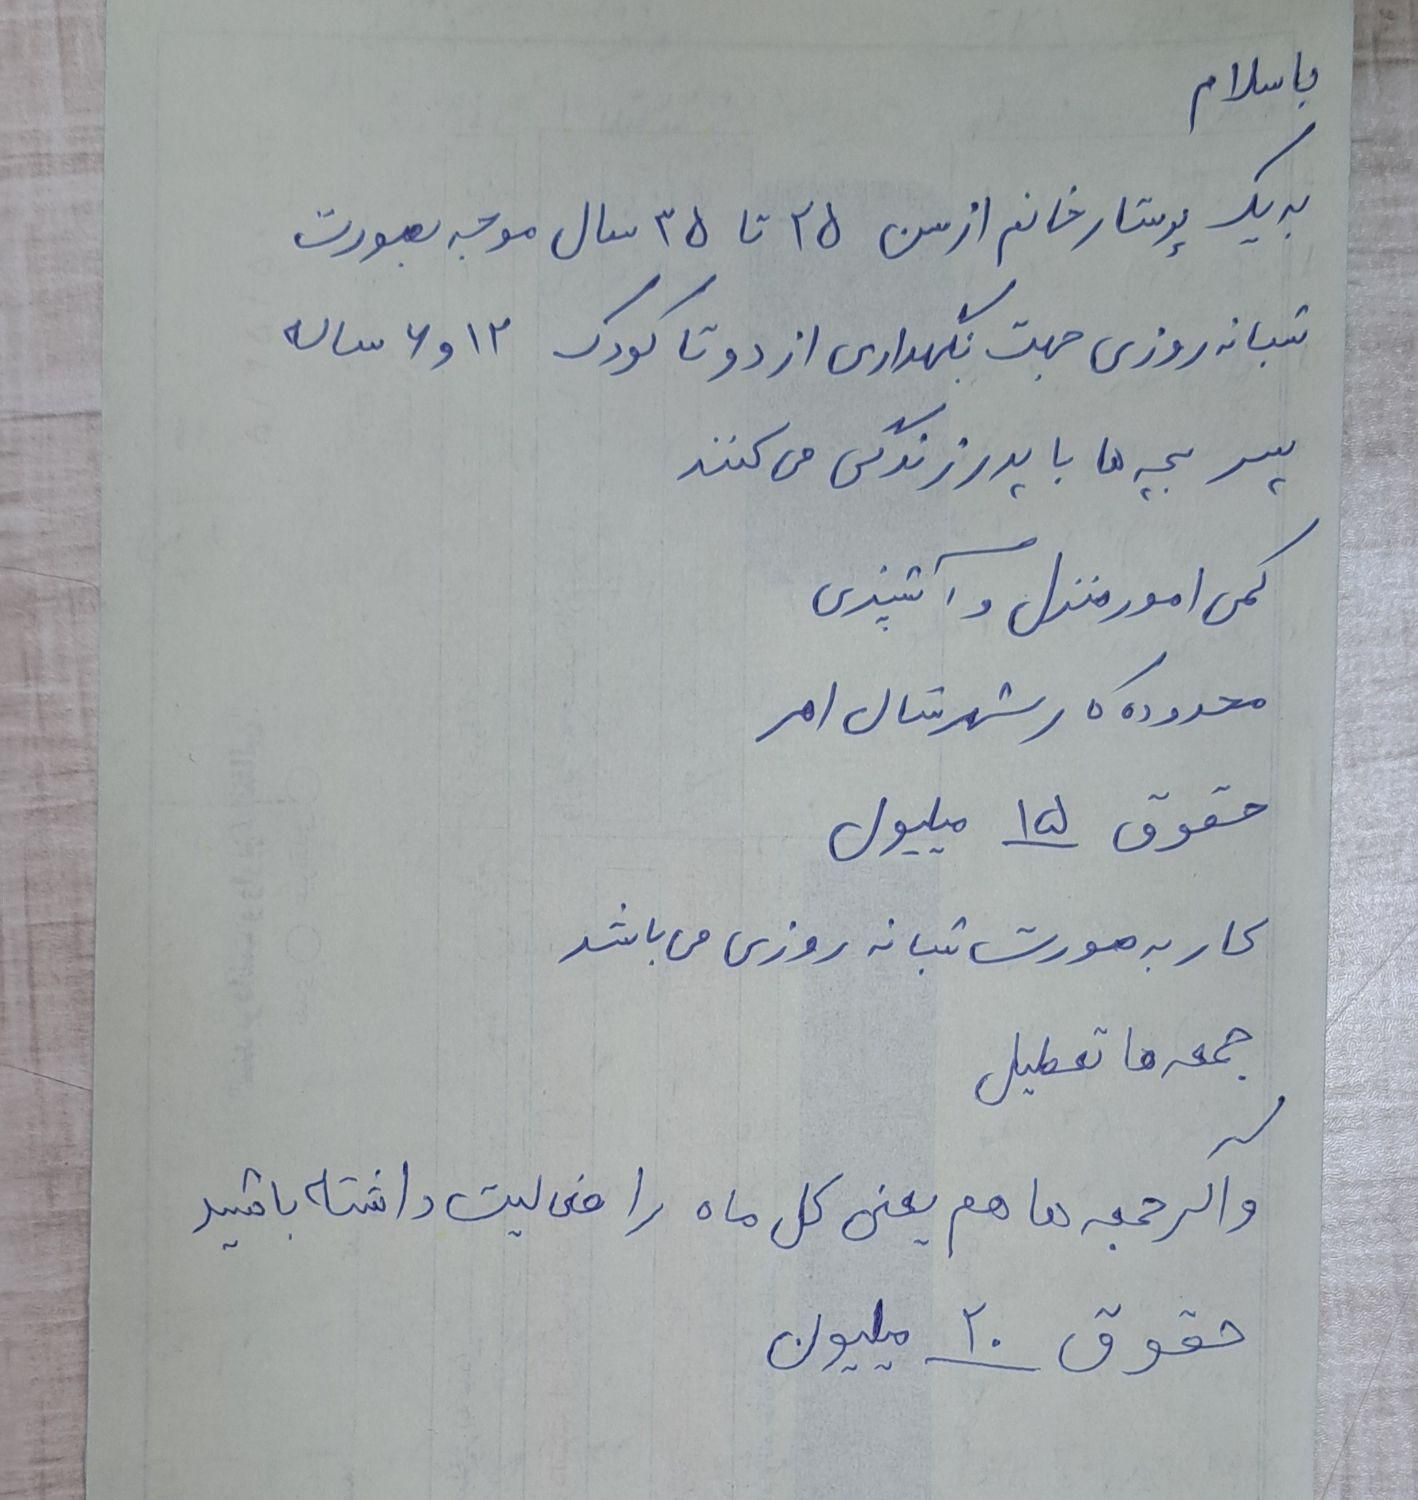 با سلام
به یک پرستار خانم از سن ۲۵ تا ۳۵ سال موجه بصورت
شبانه روزی جهت نگهداری از دو تا کودک ۱۲ و ۶ ساله
پسر بچه ها با پدر زندگی می کنند
کمی امور منزل و آشپزی
محدوده کار شهر شمال امر
حقوق ۱۵ میلیول
کار به صورت شبانه روزی می باشد
جمعه ها تعطیل
و اگر جمعه ها هم یعنی کل ماه را فعالیت داشته باشید
حقوق ۲۰ میلیون